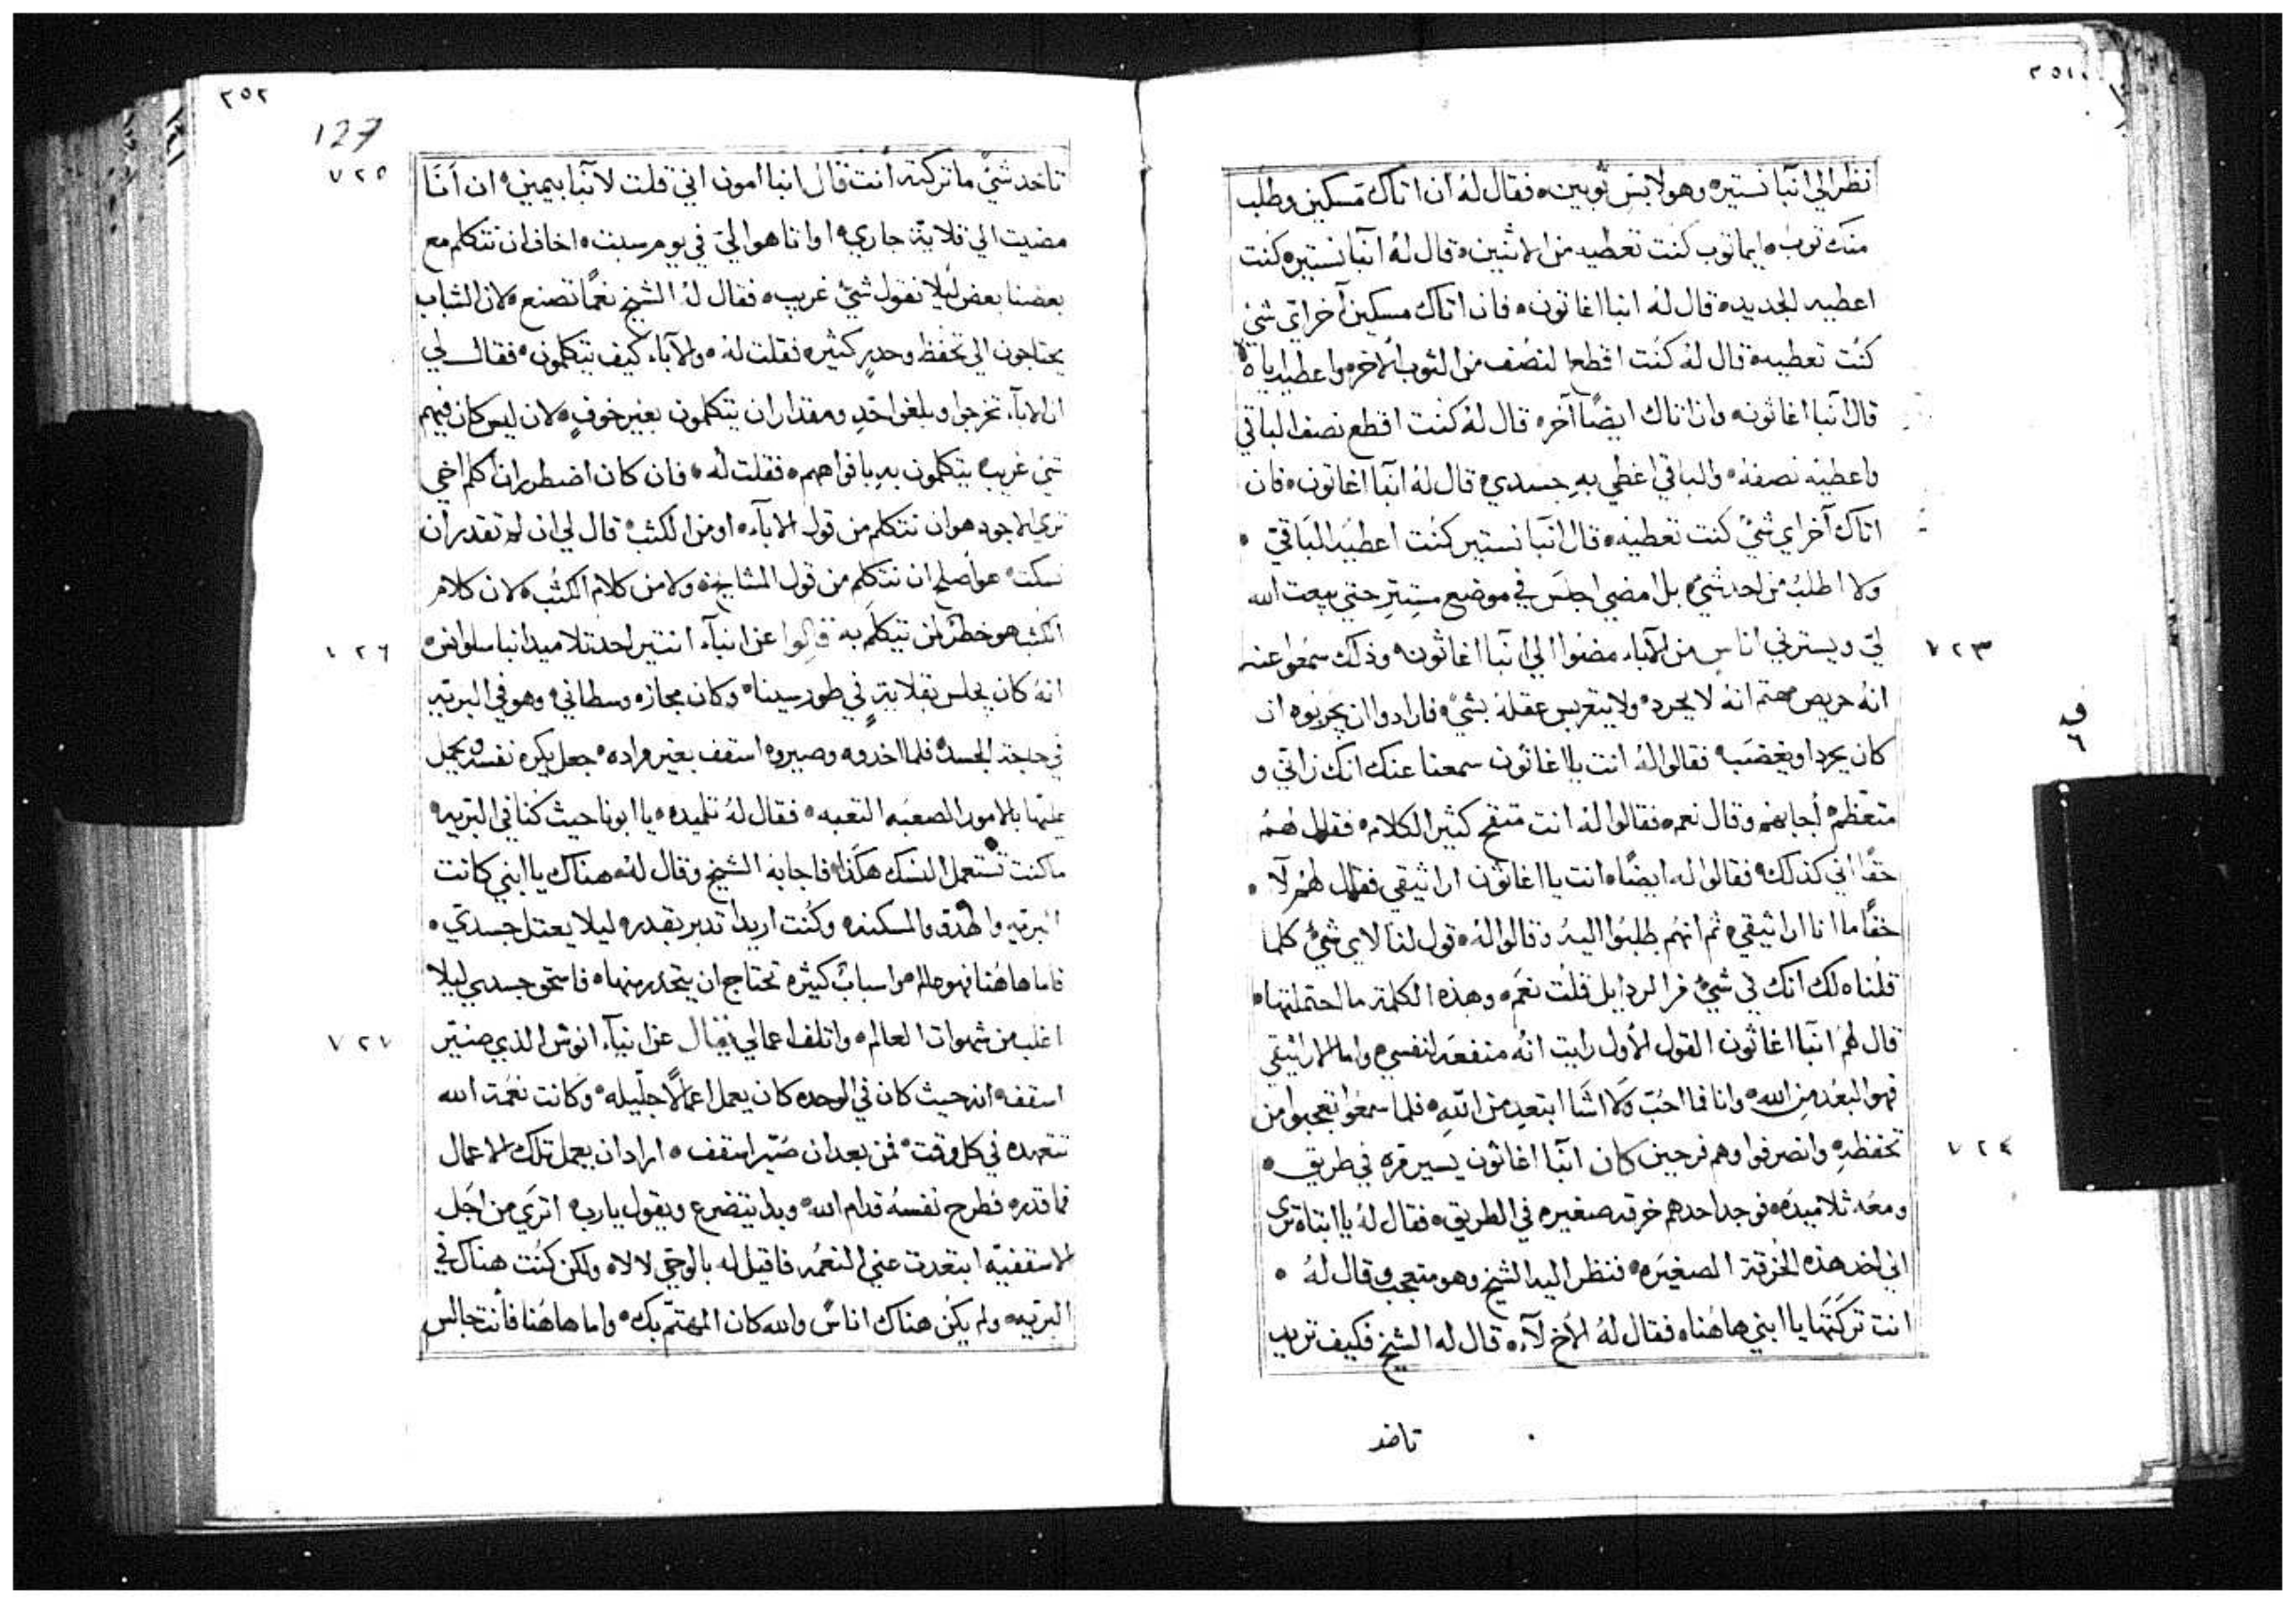 ٢٥١
نظر الي انبا نستيره وهو لابس ثوبين ه فقال له ان اتاك مسكين وطلب
منك ثوب ه ايما توب كنت تعطيه من الاثنين ه قال له انبا نستيره كنت
اعطيه الجديد ه قال له انبا اغاتون ه فان اتاك مسكين آخر اي شي
كنت تعطيه ه قال له كنت اقطع النصف من الثوب الاخر ه واعطيه اياه
قال انبا اغاثون ه وان اتاك ايضًا آخر ه قال له كنت اقطع نصف الباقي
واعطيه نصفه ه والباقي اغطي به جسدي ه قال له انبا اغاتون ه فان
اتاك آخر اي شئ كنت تعطيه ه قال انبا نستير كنت اعطيه الباقي ه
ولا اطلب من احد شئ ه بل امضي اجلس في موضع مستتر حتي يبعت الله
لي ويسترني اناس من الآباء مضوا الي انبا اغاثون ه وذلك سمعوا عنه
٧٢٣
انه حريص مهتم انه لا يحرد ه ولا يتغربس عقله بشي ه فارادوا ان يجربوه ان
كان يحرد او يغضب ه فقالوا له انت يا اغاثون سمعنا عنك انك زاني و
متعظم ه أجابهم وقال نعم ه فقالوا له انت متقح كثير الكلام ه فقال لهم
حقًا اني كذلك ه فقالوا له ايضًا ه انت يا اغاثون اراثيقي فقال لهم لآ ه
حقًا ما انا اراثيقي ه ثم انهم طلبوا اليه وقالوا له ه قول لنا لاي شئ كلما
قلناه لك انك في شئ من الردايل قلت نعم ه وهذه الكلمة ما احتملتها ه
قال لهم انبا اغاثون القول الأول رايت انه منفعه لنفسي ه واما الاراثيقي
فهو البعد من الله ه وانا فما احب ولا اشا ابتعد من الله ه فلما سمعوا تعجبوا من
تحفظه ه وانصرفوا وهم فرحين كان انبا اغاثون يسير مره في طريق ه
٧٢٤
ومعه تلاميذه ه فوجد احدهم خرقه صغيره في الطريق ه فقال له يا ابتاه تري
اني اخد هذه الخرقة الصغيره ه فنظر اليه الشيخ وهو متعجب وقال له ه
انت تركتها يا ابني هاهنا ه فقال له الأخ لآ ه قال له الشيخ فكيف تريد
تاخد
٢٥٢
127
تاخد شئ ما تركته أنت قال انبا امون اني قلت لآنبا بيمين ه ان أنا
٧٢٥
مضيت الي قلاية جاري ه او اتا هو الي في يوم سبت ه اخاف ان نتكلم مع
بعضنا بعض ليلا نقول شئ غريب ه فقال له الشيخ نعمًا تصنع ه لان الشباب
يحتاجون الي تحفظ وحدر كثير ه فقلت له ه والآباء كيف يتكلمون ه فقال لي
ان الاباء تخرجوا وبلغوا حد ومقدار ان يتكلمون بغير خوف ه لان ليس كان فيهم
شي غريب ه يتكلمون به بافواههم ه فقلت له ه فان كان اضطرار ان اكلم اخي
تري الاجود هو ان نتكلم من قول الاباء ه او من الكتب ه قال لي ان لم تقدر ان
تسكت ه هو اصلح ان نتكلم من قول المشايخ ه ولا من كلام الكتب ه لان كلام
الكتب هو خطر لمن تيكلم به قالوا عن انباء انتير احد تلاميد انبا سلوانس ه
٧٢٦
انه كان يجلس بقلاية في طور سينا ه وكان مجازه وسطاني ه وهو في البريه
في حاجة الجسد ه فلما اخدوه وصيروه اسقف بغير مراده ه جعل يكره نفسه ويحمل
عليها بالامور الصعبه التعبه ه فقال له تلميده ه يا ابونا حيث كنا في البريه ه
ما كنت تستعمل النسك هكذا ه فاجابه الشيخ وقال له ه هناك يا ابني كانت
البريه والهدو والمسكنه ه وكنت اريد اتدبر بقدر ه ليلا يعتل جسدي ه
فاما هاهنا فهو عالم ه واسباب كثيره تحتاج ان يتحدر منها ه فاسحق جسدي ليلا
اغلب من شهوات العالم ه واتلف اعمالي يقال عن انباء انوش الدي صنير
٧٢٧
اسقف ه انه حيث كان في الوحده كان يعمل اعمالًا جليله ه وكانت نعمة الله
تتعهده في كل وقت ه فمن بعد ان صير اسقف ه اراد ان يعمل تلك الاعمال
فما قدر ه فطرح نفسه قدام الله ه وبدا يتضرع ويقول يارب ه اتري من اجل
الاسقفيه ابتعدت عني النعمه ه فاقيل له بالوحي لا لا ه ولكن كنت هناك في
البريه ه ولم يكن هناك اناس والله كان المهتم بك ه واما هاهنا فأنت جالس